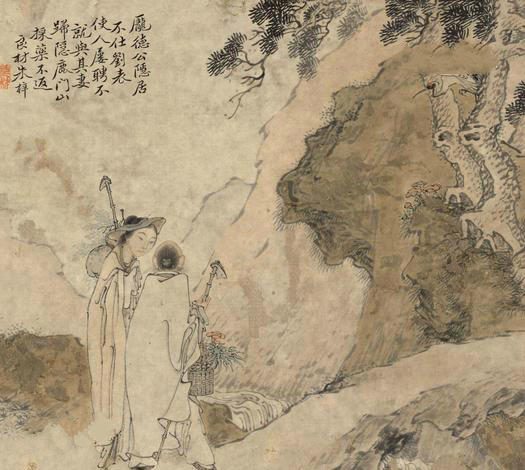 龐德公隱居
不仕劉表
使人屢聘不
就與其妻
歸隱鹿門山
採藥不返
良材朱梓